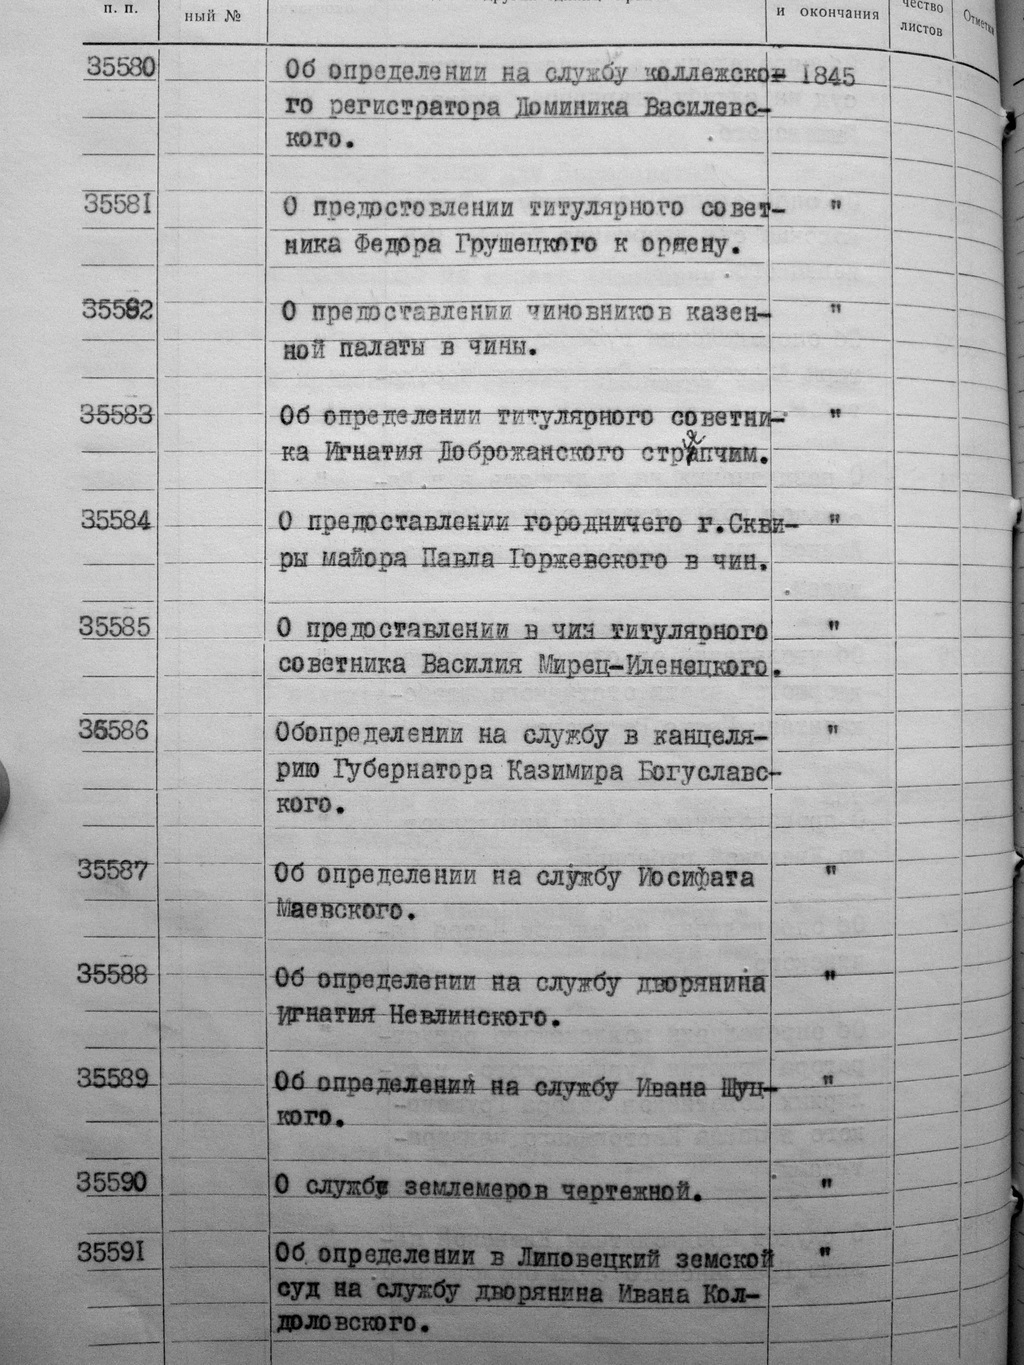 п. п.
ный №
и окончания
чество
листов
Отметки
35580 Об определении на службу коллежско- 1845
го регистратора Доминика Василевс-
кого.
35581 О предостовлении титулярного совет- "
ника Федора Грушецкого к ордену.
35582 О предоставлении чиновников казен- "
ной палаты в чины.
35583 Об определении титулярного советни- "
ка Игнатия Доброжанского стряпчим.
35584 О предоставлении городничего г.Скви- "
ры майора Павла Горжевского в чин.
35585 О предоставлении в чин титулярного "
советника Василия Мирец-Иленецкого.
35586 Обопределении на службу в канцеля- "
рию Губернатора Казимира Богуславс-
кого.
35587 Об определении на службу Иосифата "
Маевского.
35588 Об определении на службу дворянина "
Игнатия Невлинского.
35589 Об определений на службу Ивана Шуц- "
кого.
35590 О службе землемеров чертежной. "
35591 Об определении в Липовецкий земской "
суд на службу дворянина Ивана Кол-
доловского.